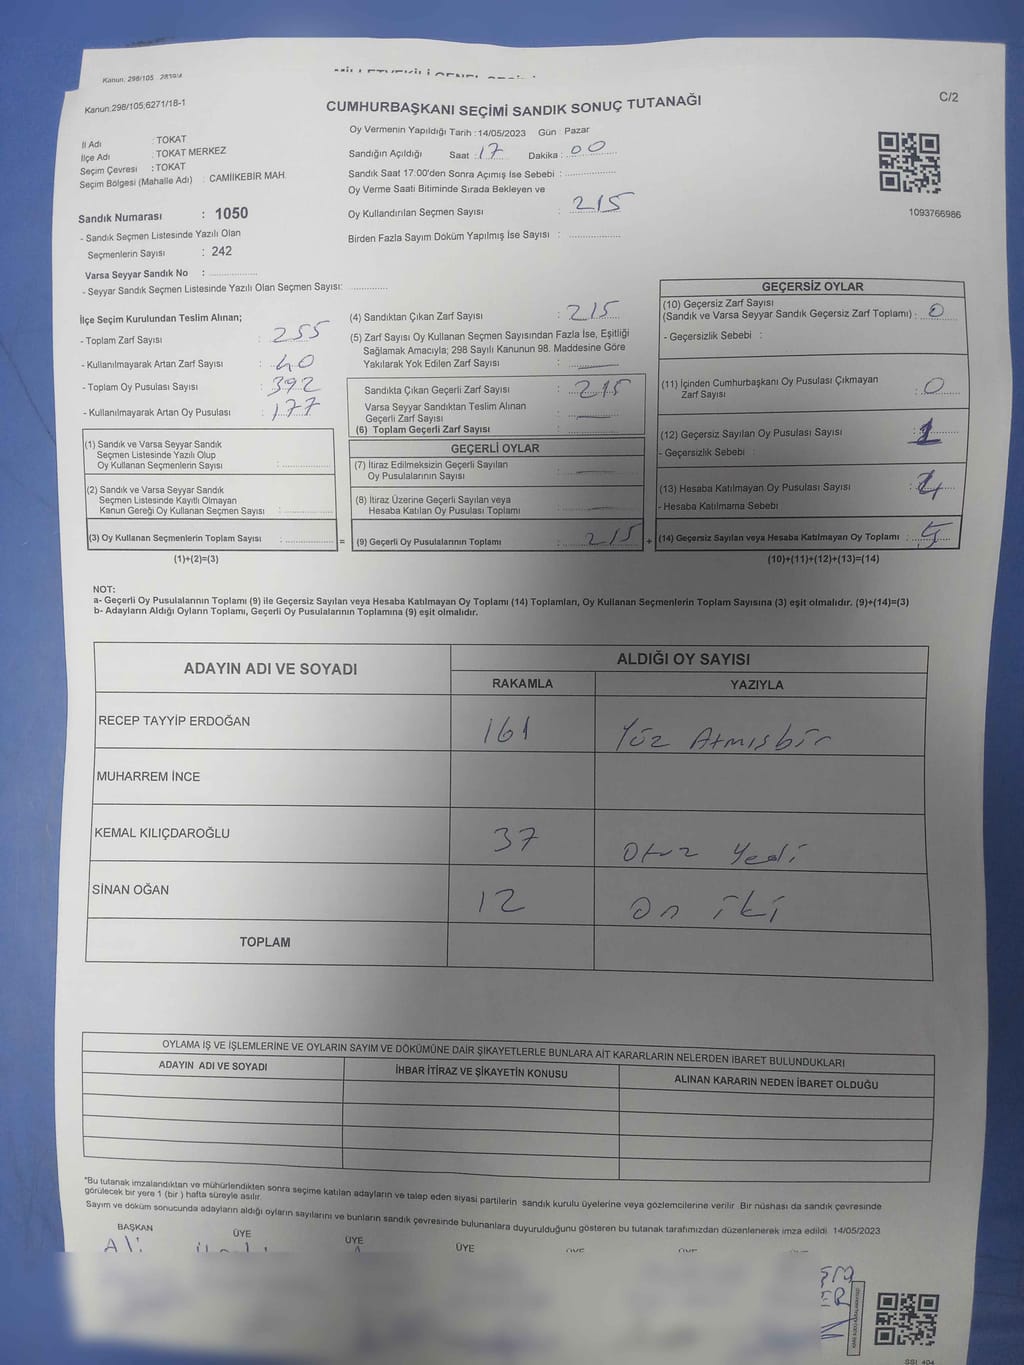 Kanun. 298/105
Kanun.298/105;6271/18-1
CUMHURBAŞKANI SEÇİMİ SANDIK SONUÇ TUTANAĞI
C/2
İl Adı : TOKAT
İlçe Adı : TOKAT MERKEZ
Seçim Çevresi : TOKAT
Seçim Bölgesi (Mahalle Adı) : CAMİİKEBİR MAH.
Sandık Numarası : 1050
- Sandık Seçmen Listesinde Yazılı Olan
Seçmenlerin Sayısı : 242
Varsa Seyyar Sandık No :
- Seyyar Sandık Seçmen Listesinde Yazılı Olan Seçmen Sayısı:
Oy Vermenin Yapıldığı Tarih : 14/05/2023 Gün Pazar
Sandığın Açıldığı Saat : 17 Dakika : 00
Sandık Saat 17:00'den Sonra Açımış İse Sebebi :
Oy Verme Saati Bitiminde Sırada Bekleyen ve
Oy Kullandırılan Seçmen Sayısı : 215
Birden Fazla Sayım Döküm Yapılmış İse Sayısı :
1093766986
İlçe Seçim Kurulundan Teslim Alınan;
- Toplam Zarf Sayısı : 255
- Kullanılmayarak Artan Zarf Sayısı : 40
- Toplam Oy Pusulası Sayısı : 392
- Kullanılmayarak Artan Oy Pusulası : 177
(1) Sandık ve Varsa Seyyar Sandık
Seçmen Listesinde Yazılı Olup
Oy Kullanan Seçmenlerin Sayısı :
(2) Sandık ve Varsa Seyyar Sandık
Seçmen Listesinde Kayıtlı Olmayan
Kanun Gereği Oy Kullanan Seçmen Sayısı :
(3) Oy Kullanan Seçmenlerin Toplam Sayısı :
(1)+(2)=(3)
=
(4) Sandıktan Çıkan Zarf Sayısı : 215
(5) Zarf Sayısı Oy Kullanan Seçmen Sayısından Fazla İse, Eşitliği
Sağlamak Amacıyla; 298 Sayılı Kanunun 98. Maddesine Göre
Yakılarak Yok Edilen Zarf Sayısı :
Sandıkta Çıkan Geçerli Zarf Sayısı : 215
Varsa Seyyar Sandıktan Teslim Alınan
Geçerli Zarf Sayısı :
(6) Toplam Geçerli Zarf Sayısı :
GEÇERLİ OYLAR
(7) İtiraz Edilmeksizin Geçerli Sayılan
Oy Pusulalarının Sayısı :
(8) İtiraz Üzerine Geçerli Sayılan veya
Hesaba Katılan Oy Pusulası Toplamı :
(9) Geçerli Oy Pusulalarının Toplamı : 215
+
GEÇERSİZ OYLAR
(10) Geçersiz Zarf Sayısı
(Sandık ve Varsa Seyyar Sandık Geçersiz Zarf Toplamı) : 0
- Geçersizlik Sebebi :
(11) İçinden Cumhurbaşkanı Oy Pusulası Çıkmayan
Zarf Sayısı : 0
(12) Geçersiz Sayılan Oy Pusulası Sayısı : 1
- Geçersizlik Sebebi :
(13) Hesaba Katılmayan Oy Pusulası Sayısı : 4
- Hesaba Katılmama Sebebi
(14) Geçersiz Sayılan veya Hesaba Katılmayan Oy Toplamı : 5
(10)+(11)+(12)+(13)=(14)
NOT:
a- Geçerli Oy Pusulalarının Toplamı (9) ile Geçersiz Sayılan veya Hesaba Katılmayan Oy Toplamı (14) Toplamları, Oy Kullanan Seçmenlerin Toplam Sayısına (3) eşit olmalıdır. (9)+(14)=(3)
b- Adayların Aldığı Oyların Toplamı, Geçerli Oy Pusulalarının Toplamına (9) eşit olmalıdır.
ADAYIN ADI VE SOYADI
ALDIĞI OY SAYISI
RAKAMLA YAZIYLA
RECEP TAYYİP ERDOĞAN 161 Yüz Atmışbir
MUHARREM İNCE
KEMAL KILIÇDAROĞLU 37 Otuz Yedi
SİNAN OĞAN 12 On iki
TOPLAM
OYLAMA İŞ VE İŞLEMLERİNE VE OYLARIN SAYIM VE DÖKÜMÜNE DAİR ŞİKAYETLERLE BUNLARA AİT KARARLARIN NELERDEN İBARET BULUNDUKLARI
ADAYIN ADI VE SOYADI İHBAR İTİRAZ VE ŞİKAYETİN KONUSU ALINAN KARARIN NEDEN İBARET OLDUĞU
*Bu tutanak imzalandıktan ve mühürlendikten sonra seçime katılan adayların ve talep eden siyasi partilerin sandık kurulu üyelerine veya gözlemcilerine verilir. Bir nüshası da sandık çevresinde
görülecek bir yere 1 (bir ) hafta süreyle asılır.
Sayım ve döküm sonucunda adayların aldığı oyların sayılarını ve bunların sandık çevresinde bulunanlara duyurulduğunu gösteren bu tutanak tarafımızdan düzenlenerek imza edildi. 14/05/2023
BAŞKAN ÜYE ÜYE ÜYE